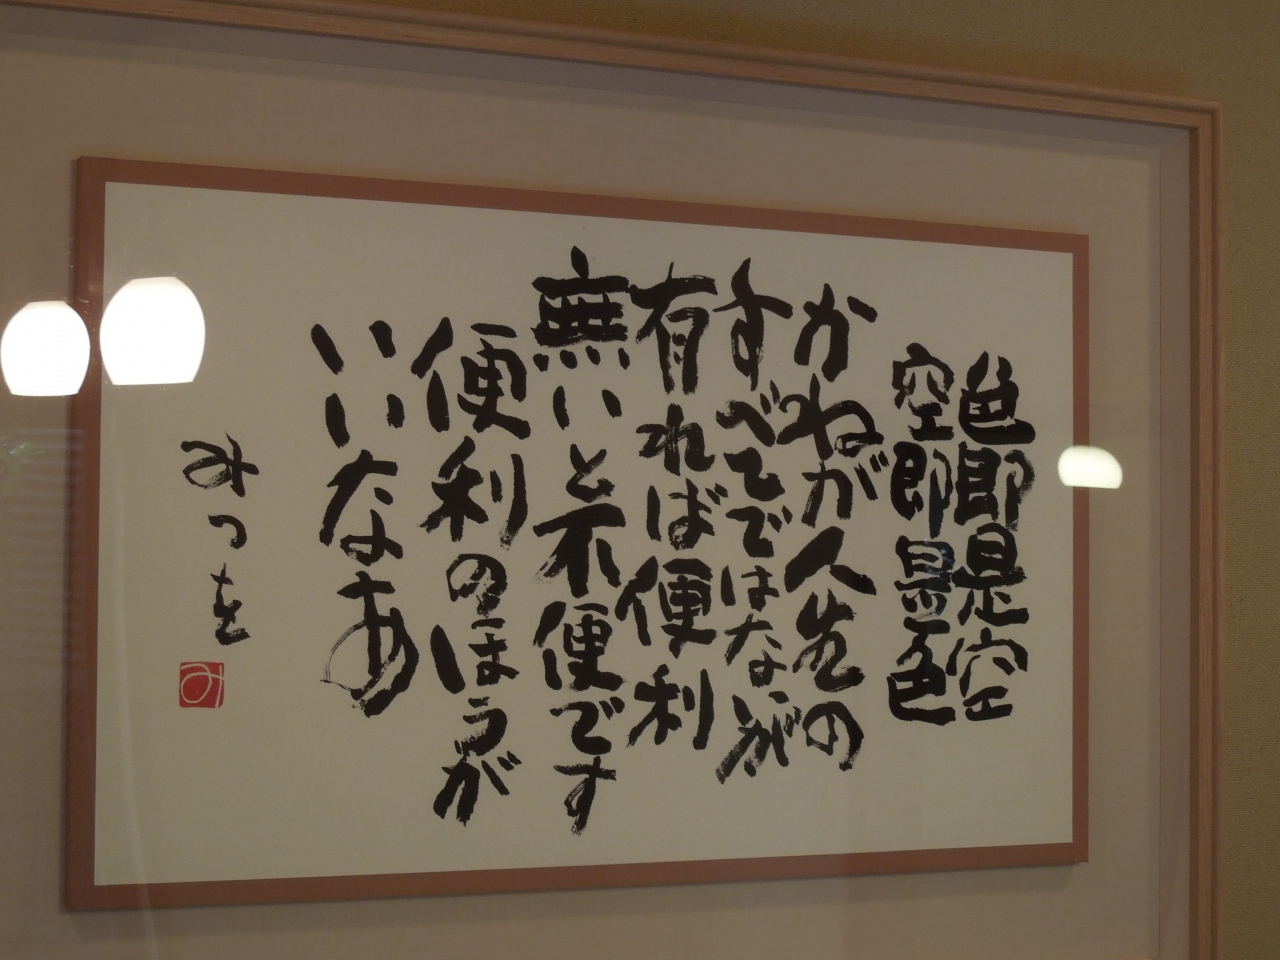 色即是空
空即是色
かねが人生の
すべてではないが
有れば便利
無いと不便です
便利のほうが
いいなあ
みつを
み